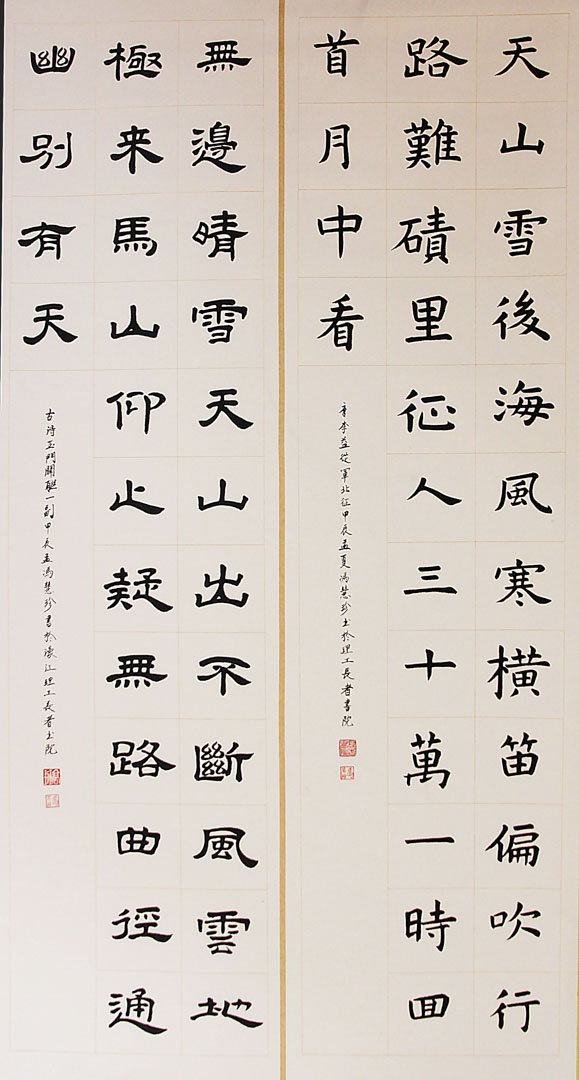 天山雪後海風寒橫笛偏吹行
路難磧里征人三十萬一時囬
首月中看
唐李益從軍北征甲辰孟夏馮慧珍书於理工長者書院
無邊晴雪天山出不斷風雲地
極来馬山仰止疑無路曲徑通
幽別有天
古詩玉門關聯一副甲辰孟馮慧珍書於濠江理工長者书院